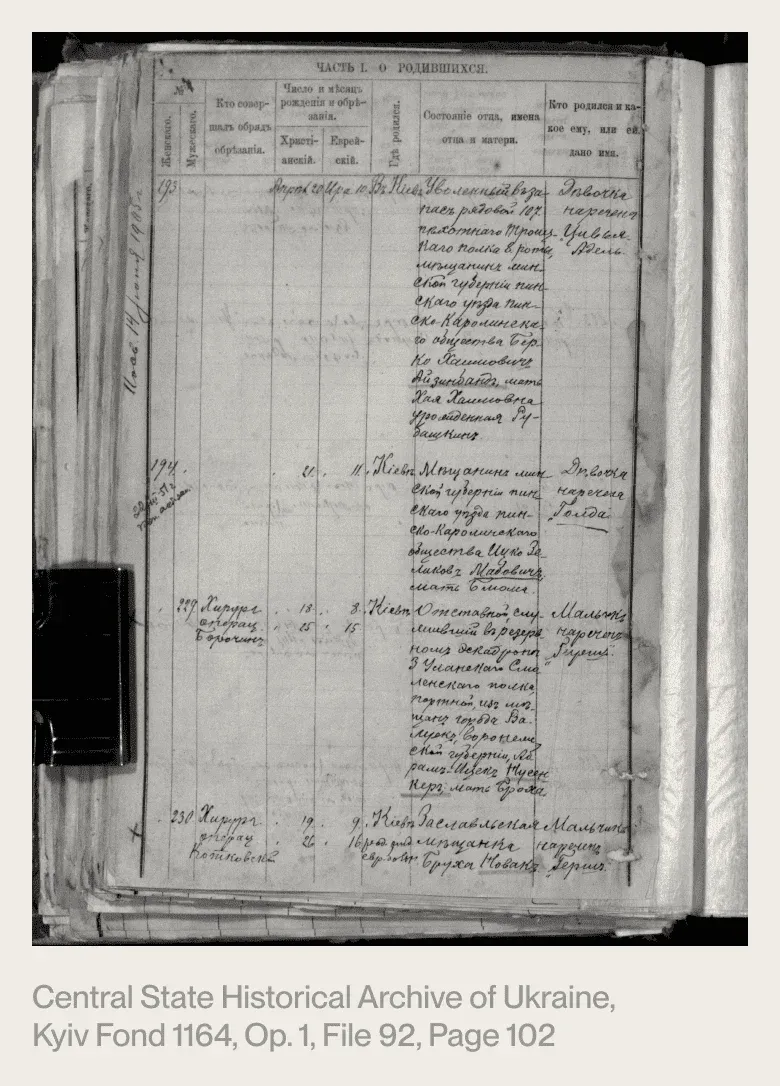 ЧАСТЬ I. О РОДИВШИХСЯ.
№
Женскаго.
Мужескаго.
Кто совер-
шалъ обрядъ
обрѣзанія.
Число и мѣсяцъ
рожденія и обрѣ-
занія.
Христі-
анскій.
Еврей-
скій.
Гдѣ родился.
Состояніе отца, имена
отца и матери.
Кто родился и ка-
кое ему, или ей
дано имя.
193
Апрѣл 20
10
Въ Кіевѣ
Уволенный въ за-
пасъ рядовой 107
пѣхотнаго Троиц-
каго полка 8 роты,
мѣщанинъ мин-
ской губерніи пин-
скаго уѣзда пин-
ско-Каролинска-
го общества Бер-
ко Хаимовичъ
Айзинбантъ, мать
Хая Хаимовна
урожденная Ру-
башкинъ.
Дѣвочка
наречена
Цивья-
Адель
194.
21.
11.
Кіевѣ
Мѣщанинъ мин-
ской губерніи пин-
скаго уѣзда пин-
ско-Каролинскаго
общества Ицко Зе-
ликовъ Мабовичъ,
мать Блюма.
Дѣвочка
наречена
"Голда"
229
Хирургъ
операц.
18.
8.
25
15.
Кіевѣ
Отставной, слу-
жившій въ резерв-
номъ эскадронѣ
3 Уланскаго Смо-
ленскаго полка,
портной, изъ мѣ-
щанъ города Ва-
луекъ, Воронеж-
ской губерніи, Аб-
рамъ-Ицекъ
мать Броха.
Мальчикъ
нареченъ
"Гершъ".
230
Хирургъ
операц
19.
9.
26
16
Кіевѣ
Заславльская
мѣщанка
Бруха
Мальчикъ
нареченъ
"Гершъ".
Central State Historical Archive of Ukraine,
Kyiv Fond 1164, Op. 1, File 92, Page 102